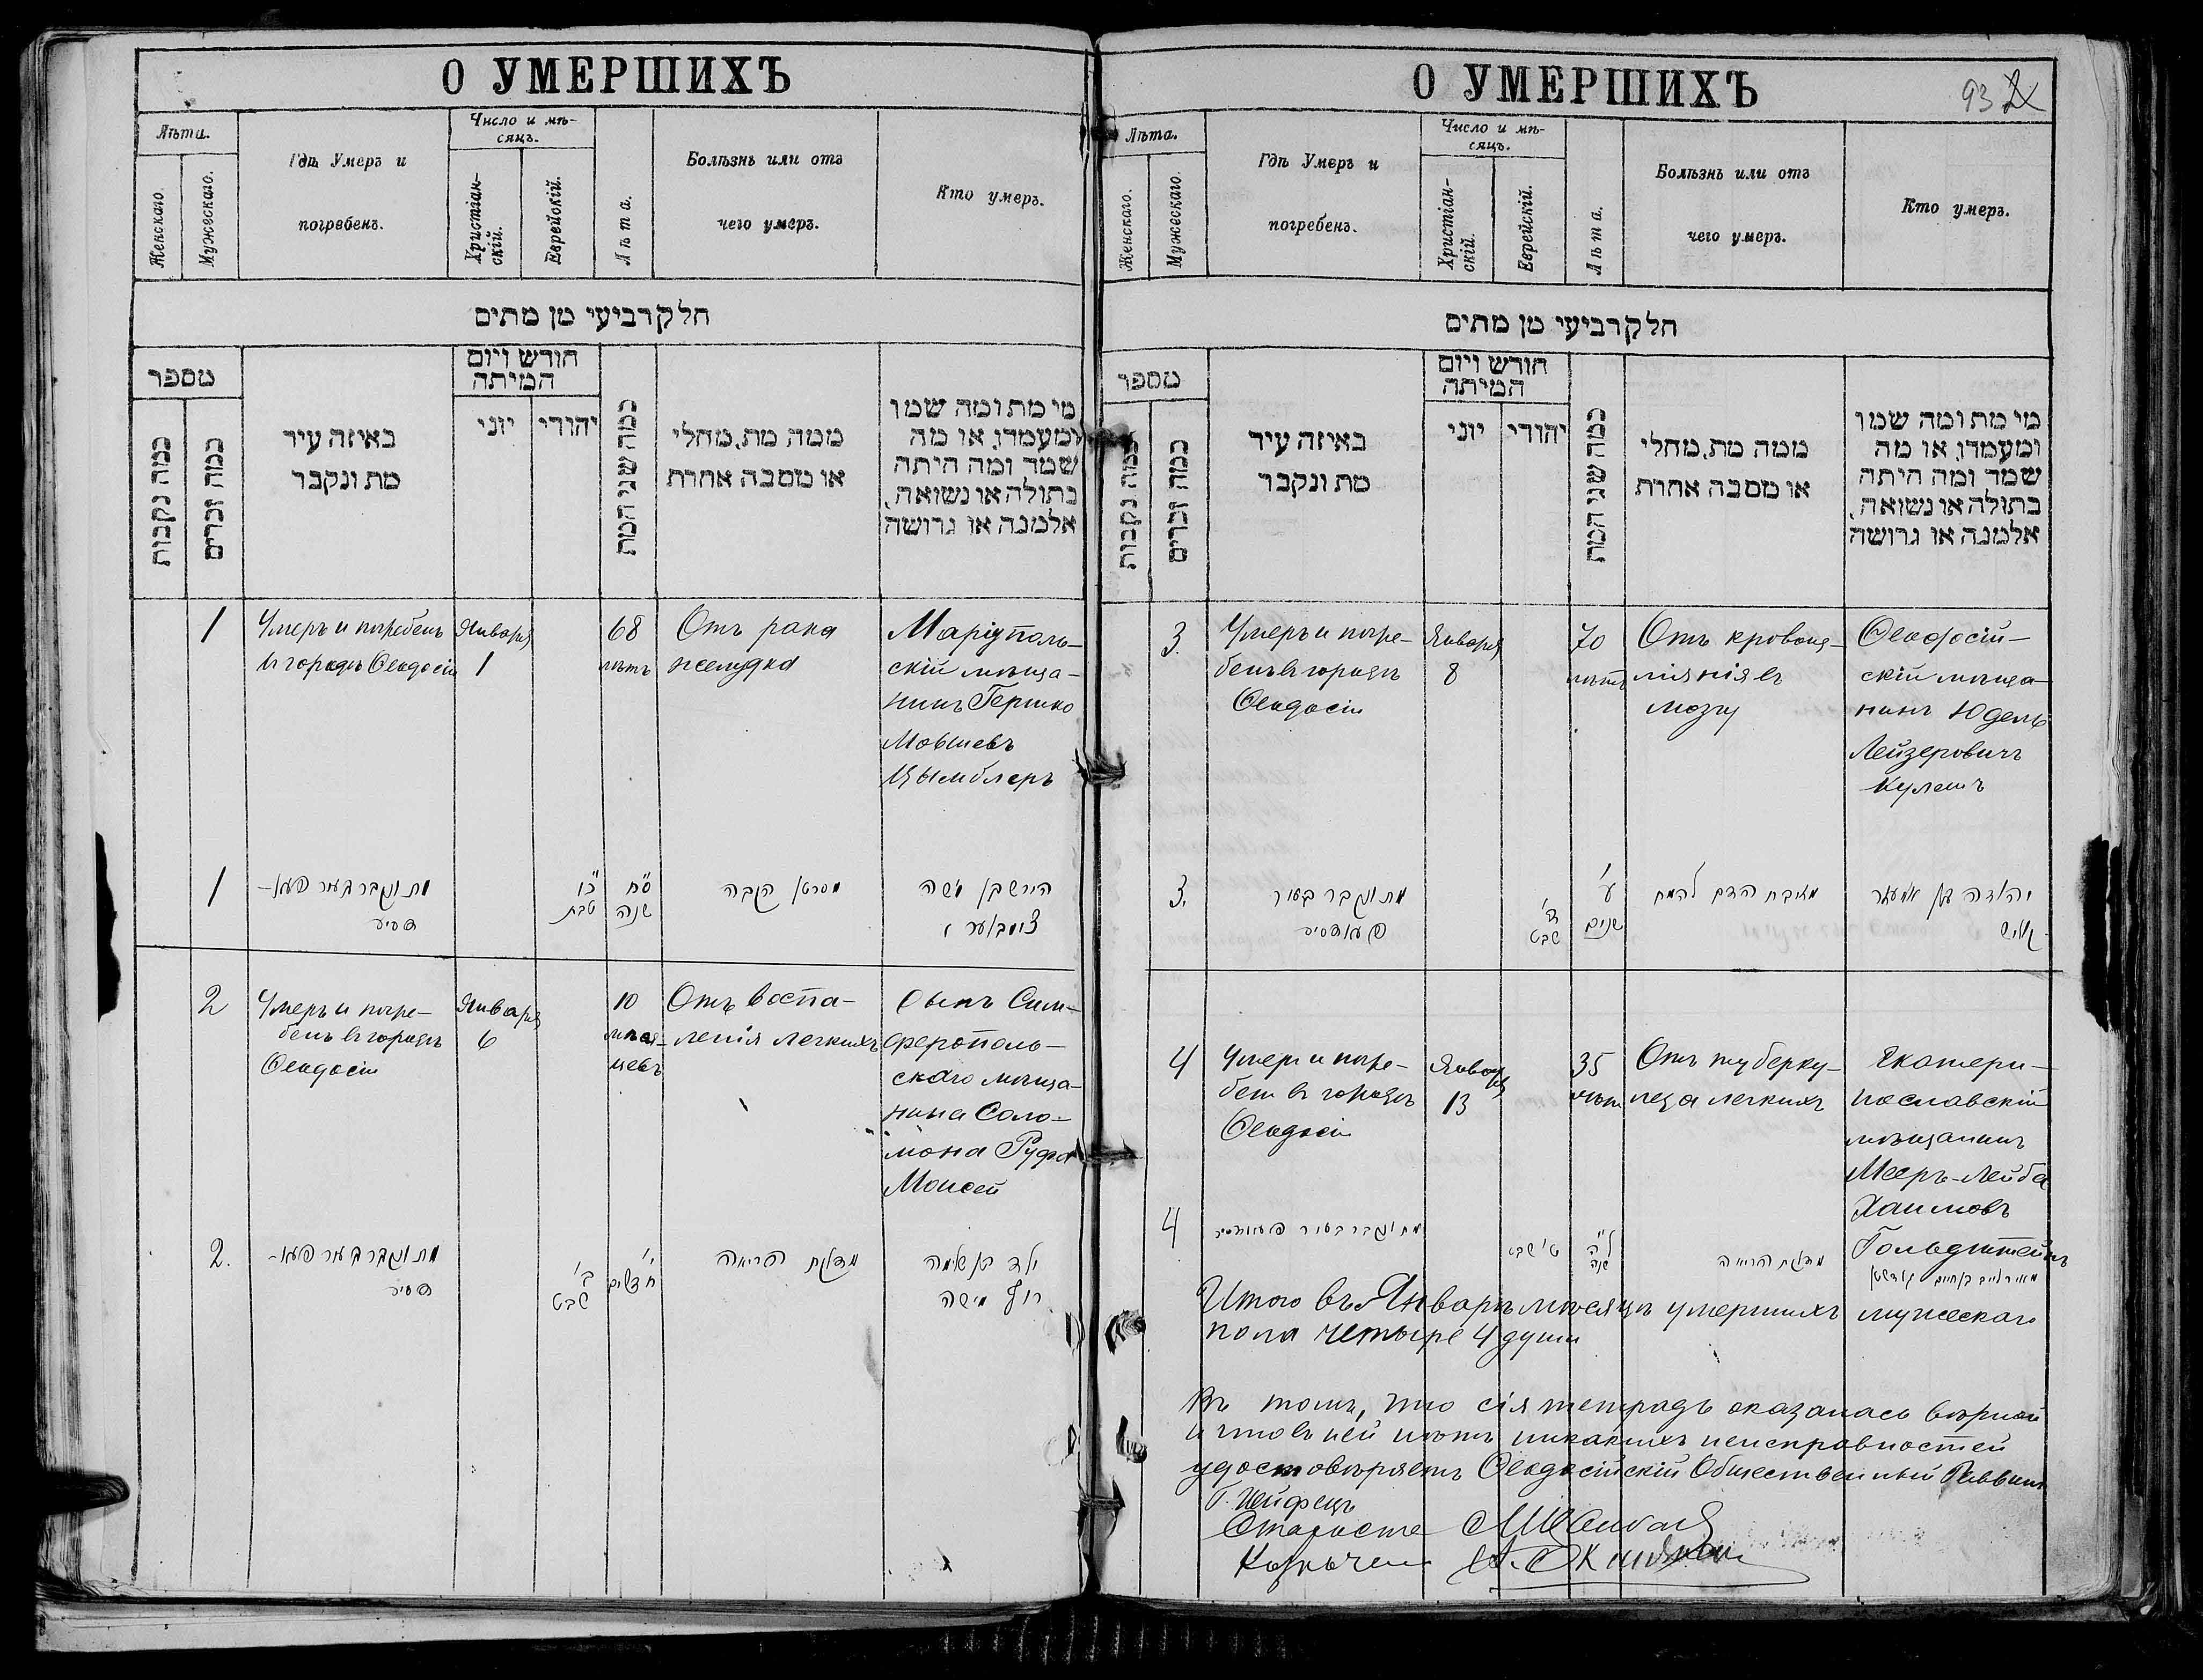 О УМЕРШИХЪ
Лѣта.
Женскаго.
Мужескаго.
Гдѣ Умеръ и
погребенъ.
Число и мѣ-
сяцъ.
Христіан-
скій.
Еврейскій.
Лѣта.
Болѣзнь или отъ
чего умеръ.
Кто умеръ.
חלק רביעי מן מתים
מספר
כמה נקבות
כמה זכרים
באיזה עיר
מת ונקבר
חודש ויום
המיתה
יוני
יהודי
כמה שני המת
ממה מת, מחלי
או מסבה אחרת
מי מת ומה שמו
ומעמדו, או מה
שמה ומה היתה
בתולה או נשואה,
אלמנה או גרושה
1
Умеръ и погребенъ
въ городѣ Ѳеодосіи
Января
1
68
лѣтъ
Отъ рака
желудка
Маріуполь-
скій мѣща-
нинъ Гершко
Мовшевъ
Цымблеръ
1
מת ונקבר בעיר פעא-
דסיע
כ"ו
טבת
ס"ח
שנה
מסרטן הקבה
הירש בן משה
צימבלער
2
Умеръ и погре-
бенъ въ городѣ
Ѳеодосіи
Января
6
10
мѣся-
цевъ
Отъ воспа-
ленія легкихъ
Сынъ Сим-
ферополь-
скаго мѣща-
нина Соло-
мона Руфа
Моисей
2.
מת ונקבר בעיר פעא-
דסיע
ב'
שבט
י'
חדשים
מדלקת הריאה
ילד בן שלמה
רוף משה
О УМЕРШИХЪ
93
Лѣта.
Женскаго.
Мужескаго.
Гдѣ Умеръ и
погребенъ.
Число и мѣ-
сяцъ.
Христіан-
скій.
Еврейскій.
Лѣта.
Болѣзнь или отъ
чего умеръ.
Кто умеръ.
חלק רביעי מן מתים
מספר
כמה נקבות
כמה זכרים
באיזה עיר
מת ונקבר
חודש ויום
המיתה
יוני
יהודי
כמה שני המת
ממה מת, מחלי
או מסבה אחרת
מי מת ומה שמו
ומעמדו, או מה
שמה ומה היתה
בתולה או נשואה,
אלמנה או גרושה
3.
Умеръ и погре-
бенъ въ городѣ
Ѳеодосіи
Января
8
70
лѣтъ
Отъ кровоиз-
ліянія въ
мозгу
Ѳеодосій-
скій мѣща-
нинъ Юдель
Лейзеровичъ
Кулешъ
3.
מת ונקבר בעיר
פעאדסיע
ד'
שבט
ע'
שנים
הדם למח
יהודה בן
4
Умеръ и погре-
бенъ въ городѣ
Ѳеодосіи
Января
13
35
лѣтъ
Отъ туберку-
леза легкихъ
Екатери-
нославскій
мѣщанинъ
Мееръ-Лейба
Хаимовъ
Гольдштейнъ
4
מת ונקבר בעיר פעאדסיע
ט' שבט
ל"ה
שנה
הריאה
מאיר לייב בן חיים גולדשטיין
Итого въ Январѣ мѣсяцѣ умершихъ мужескаго
пола четыре 4 души
Въ томъ, что сія тетрадь оказалась вѣрной
и что въ ней нѣтъ никакихъ неисправностей
удостовѣряетъ Ѳеодосійскій Общественный Раввинъ
Г. Хейфецъ
Староста
Казначей